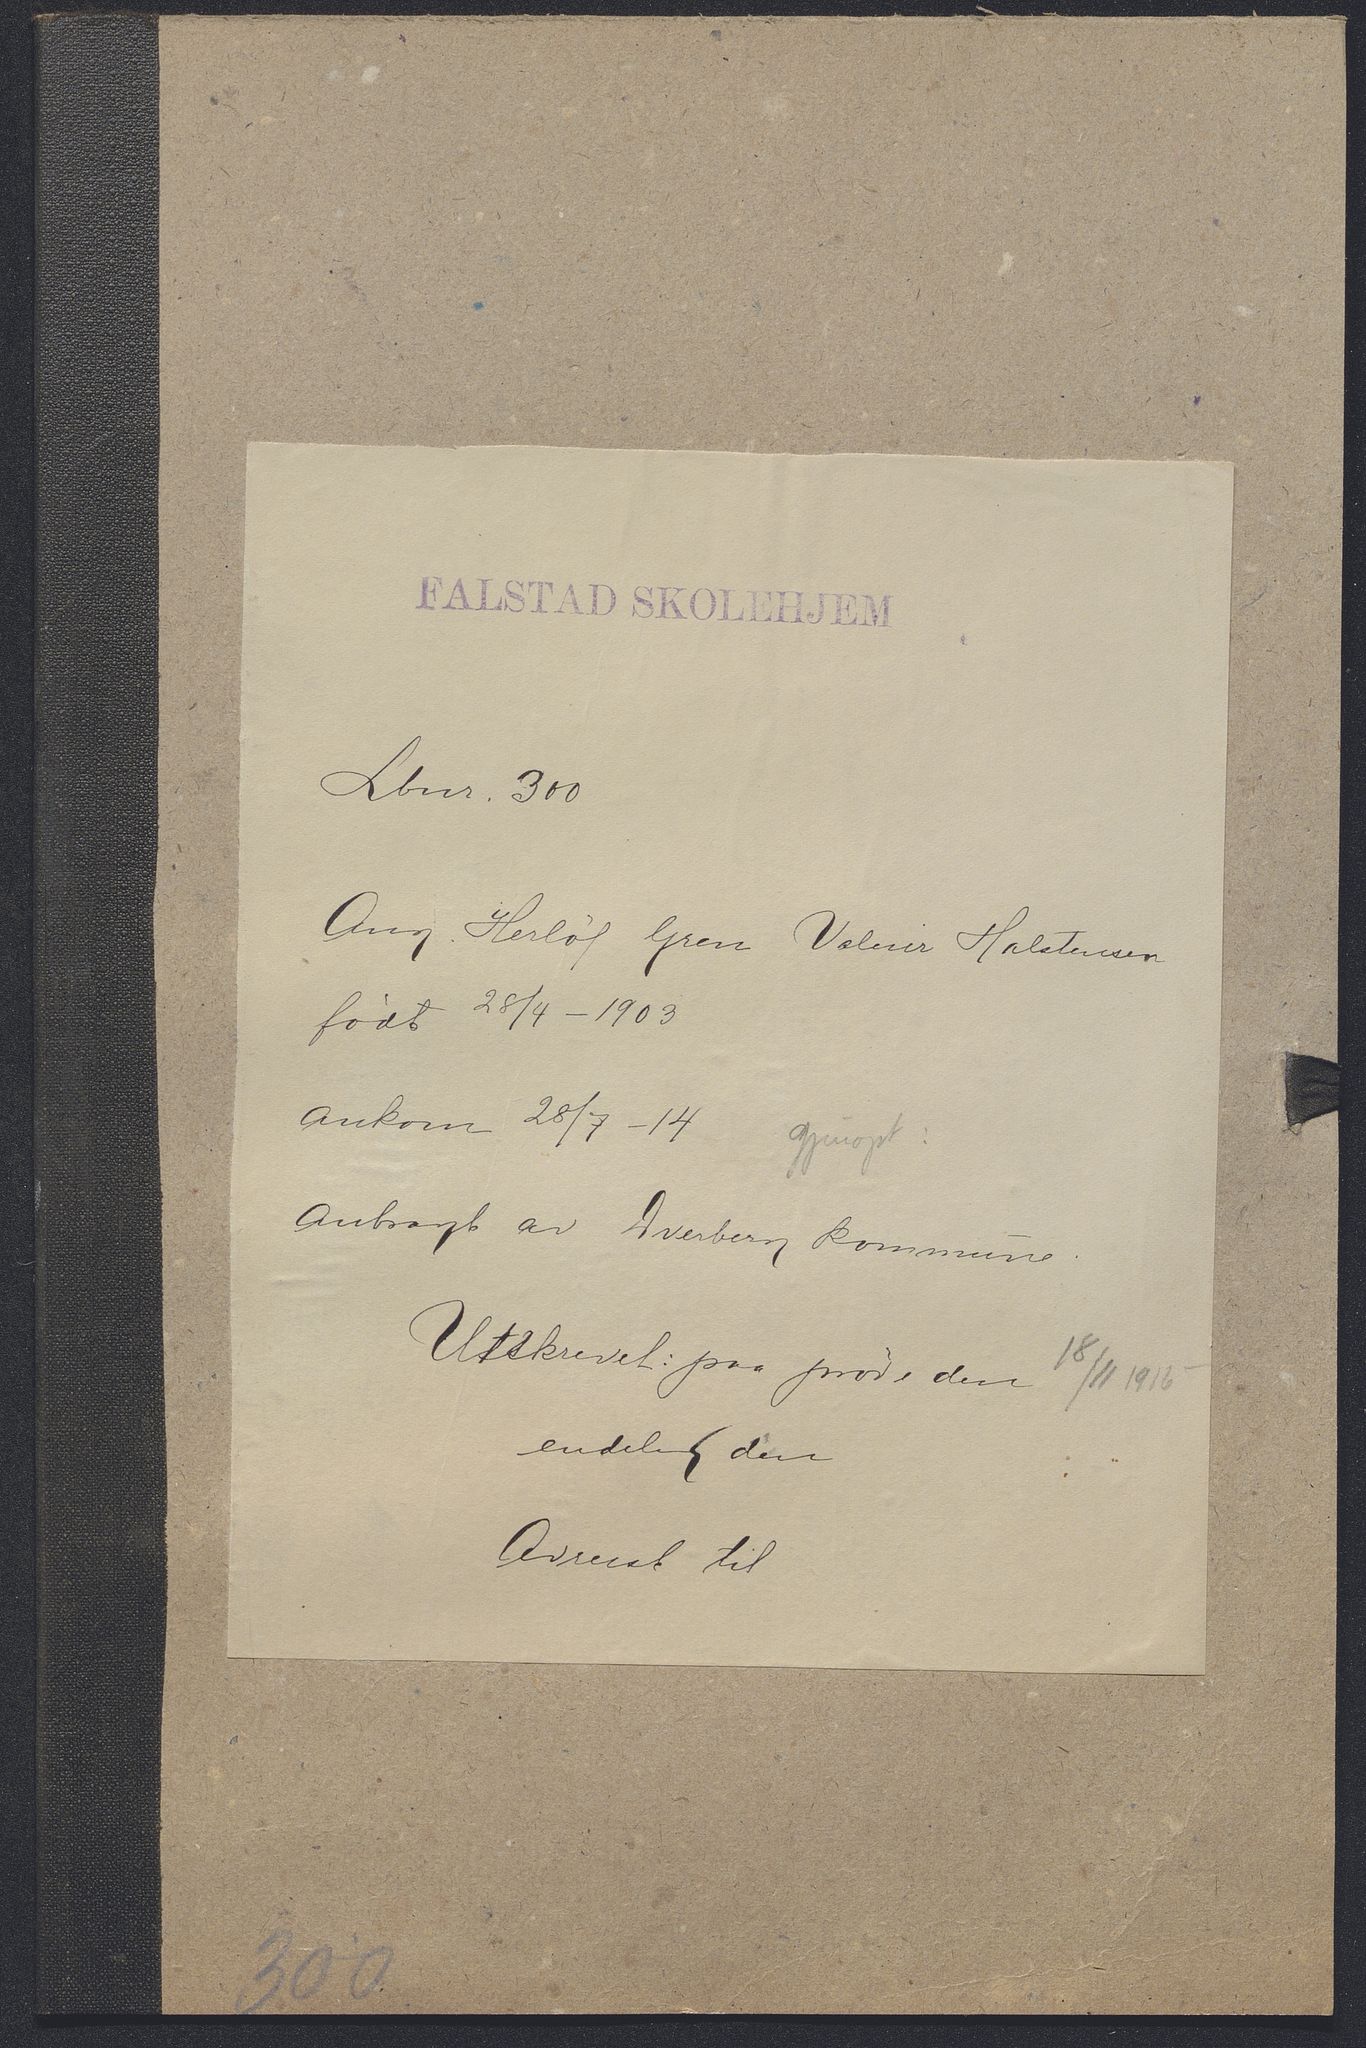 FALSTAD SKOLEHJEM
Lbnr. 300
Ang. Herløf Gren Valeur Halstensen
født 28/4 - 1903
ankom 28/7 - 14
anbragt av Dverberg kommune.
Utskrevet: paa prøve den 18/11 1916
endelig den
Avreist til
300